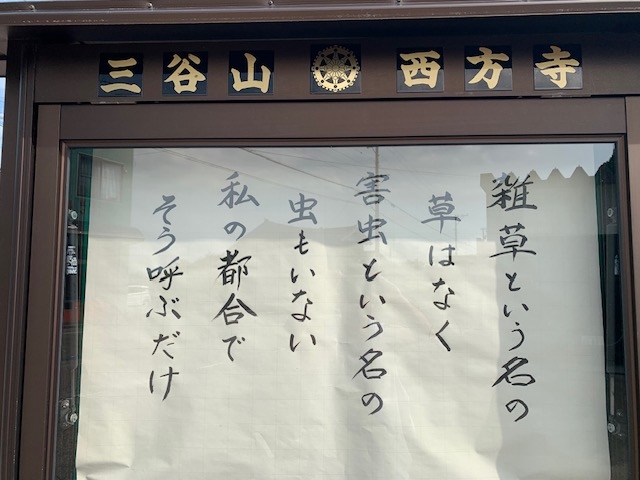 三谷山 西方寺
雑草という名の
草はなく
害虫という名の
虫もいない
私の都合で
そう呼ぶだけ